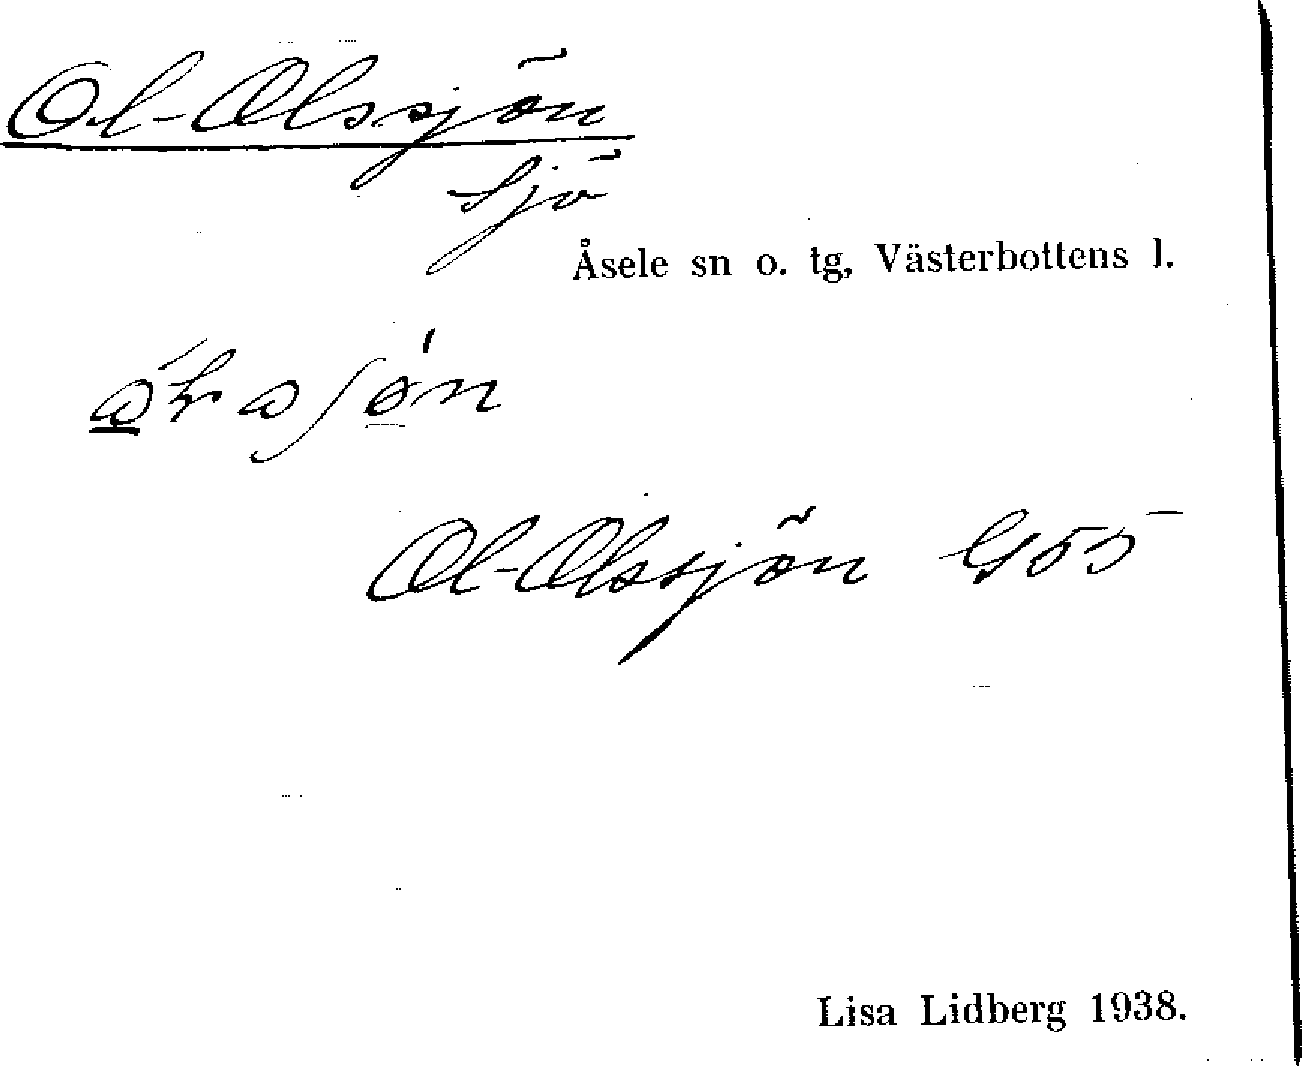 Ol-Olssjön
Sjö
Åsele sn o. tg, Västerbottens l.
Ol-Olssjön G55
Lisa Lidberg 1938.